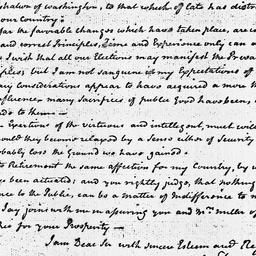 of Washington, to that which of late has
our country:
far the favorable changes which have taken place, are
and correct Principles, Time and Experience only can
I wish that all our Elections may manifest the
but I am not sanguine in my Expectations of
Considerations appear to have acquired a more
influence many Sacrifices of public Good have been,
to them —
Exertions of the virtuous and intelligent, must
should they become relaxed by a Sense either of Security
probably lose the Ground we have gained.
to Retirement the same affection for my Country, by
been actuated; and you rightly judge, that nothing
to the Public, can be a matter of Indifference to
Jay joins with me in assuring you and Mrs.
for your Prosperity —
I am Dear Sir with sincere Esteem and